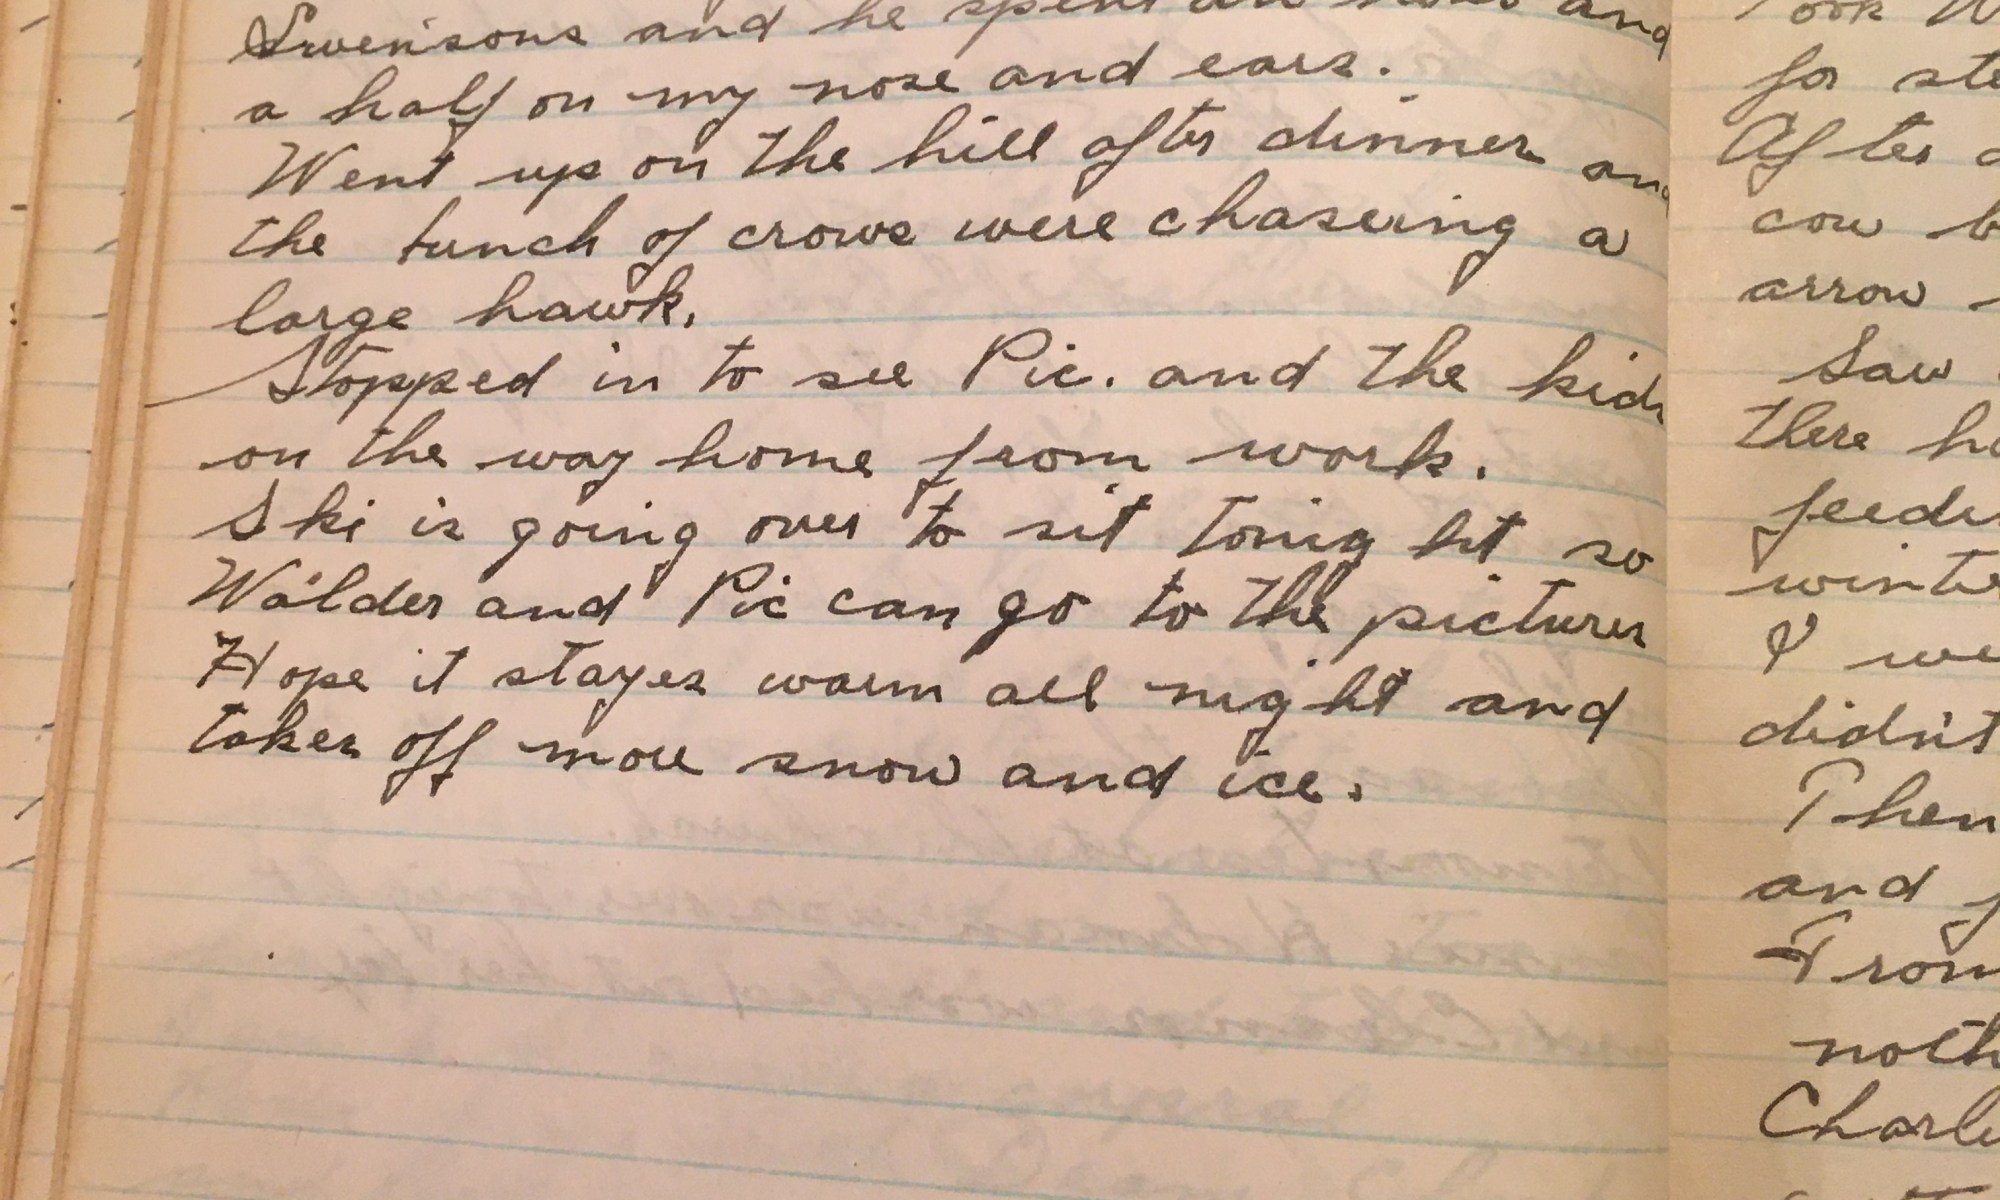 Swensons and he spent an hour and
a half on my nose and ears.
Went up on the hill after dinner and
the bunch of crows were chaseing a
large hawk.
Stopped in to see Pic. and the kids
on the way home from work.
Ski is going over to sit tonight so
Walder and Pic can go to the pictures
Hope it stayes warm all night and
takes off more snow and ice.
for
After
cow
arrow
Saw
there
I
didn't
Then
and